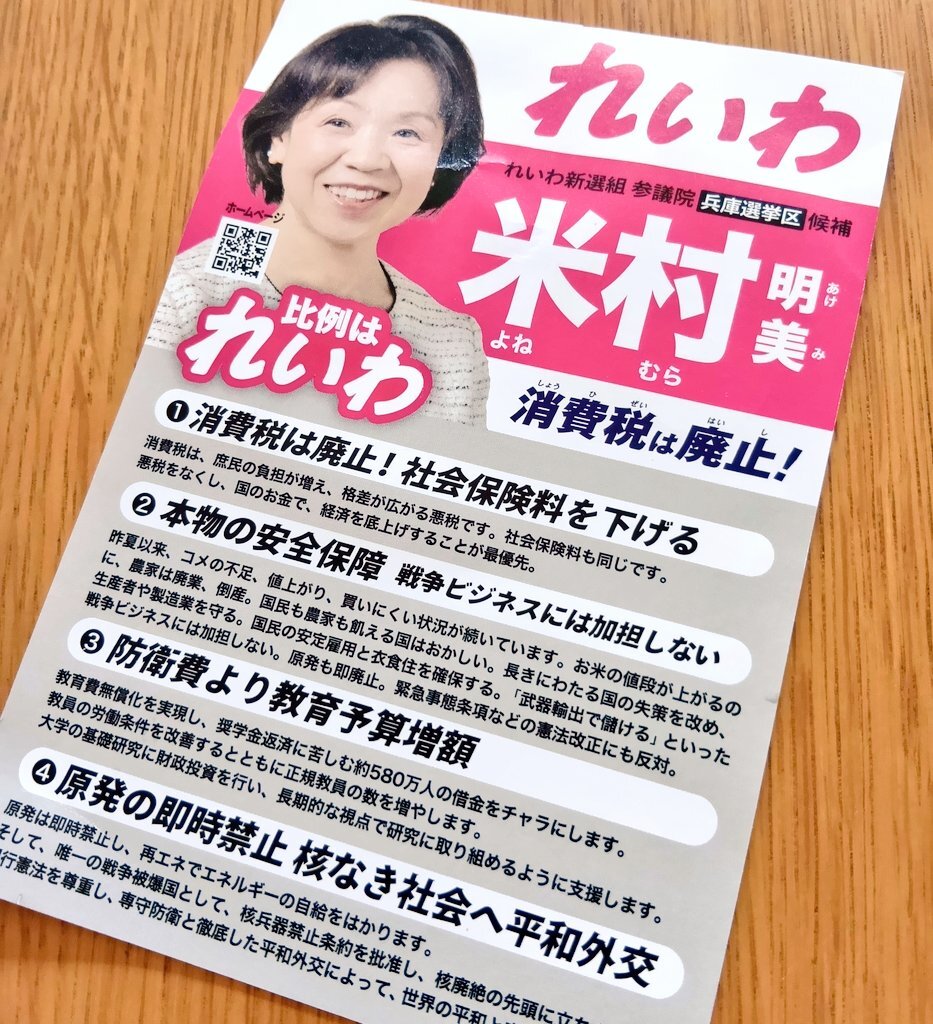 れいわ
れいわ新選組 参議院 兵庫選挙区 候補
米村明美
よねむら あけみ
ホームページ
比例は
れいわ
しょうひぜい はいし
消費税は廃止!
❶ 消費税は廃止! 社会保険料を下げる
消費税は、庶民の負担が増え、格差が広がる悪税です。社会保険料も同じです。
悪税をなくし、国のお金で、経済を底上げすることが最優先。
❷ 本物の安全保障 戦争ビジネスには加担しない
昨夏以来、コメの不足、値上がり、買いにくい状況が続いています。お米の値段が上がるの
に、農家は廃業、倒産。国民も農家も飢える国はおかしい。長きにわたる国の失策を改め、
生産者や製造業を守る。国民の安定雇用と衣食住を確保する。「武器輸出で儲ける」といった
戦争ビジネスには加担しない。原発も即廃止。緊急事態条項などの憲法改正にも反対。
❸ 防衛費より教育予算増額
教育費無償化を実現し、奨学金返済に苦しむ約580万人の借金をチャラにします。
教員の労働条件を改善するとともに正規教員の数を増やします。
大学の基礎研究に財政投資を行い、長期的な視点で研究に取り組めるように支援します。
❹ 原発の即時禁止 核なき社会へ平和外交
原発は即時禁止し、再エネでエネルギーの自給をはかります。
そして、唯一の戦争被爆国として、核兵器禁止条約を批准し、核廃絶の先頭に立ち
行憲法を尊重し、専守防衛と徹底した平和外交によって、世界の平和と